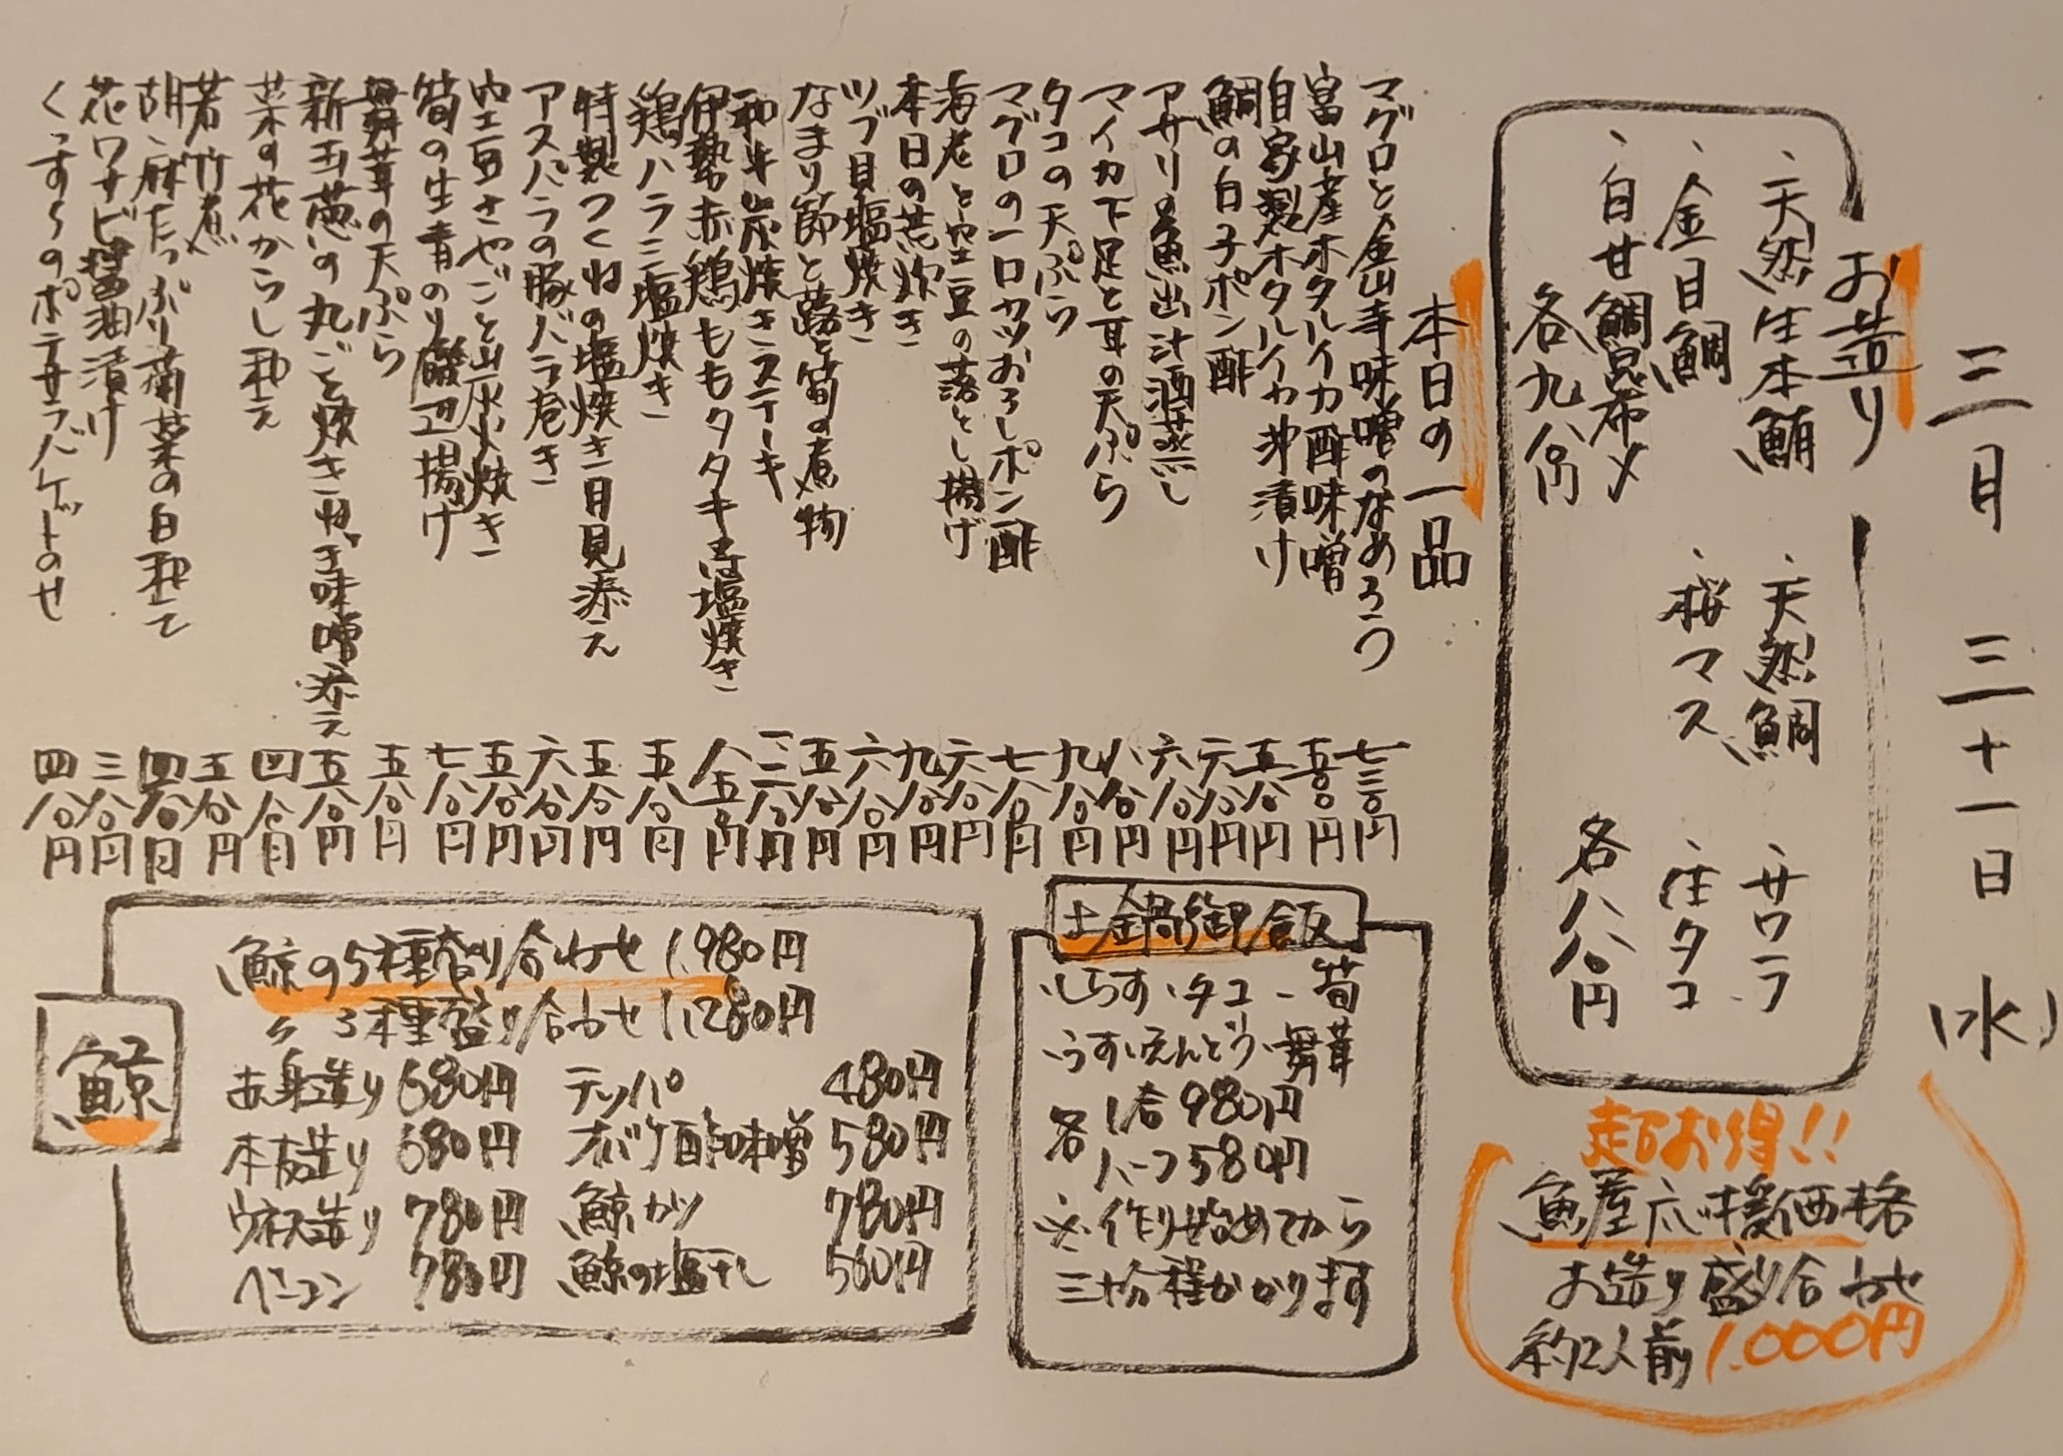 三月 三十一日 (水)
お造り
、天然生本鮪 、天然鯛 、サワラ
、金目鯛 、桜マス 、活タコ
、白甘鯛昆布〆
各九八〇円 各八八〇円
超お得!!
魚屋応援価格
お造り盛り合わせ
約2人前 1,000円
本日の一品
マグロと金山寺味噌のなめろう 七三〇円
富山産ホタルイカ酢味噌 五五〇円
自家製ホタルイカ沖漬け 五八〇円
鯛の白子ポン酢 六八〇円
アサリの魚出汁酒蒸し 六八〇円
マイカ下足と耳の天ぷら 八八〇円
タコの天ぷら 九八〇円
マグロの一口カツおろしポン酢 七八〇円
海老と空豆の落とし揚げ 六八〇円
本日の荒炊き 九八〇円
ツブ貝塩焼き 六八〇円
なまり節と蕗と筍の煮物 五八〇円
和牛炭焼きステーキ
伊勢赤鶏ももタタキ又は塩焼き 八五〇円
鶏ハラミ塩焼き 五八〇円
特製つくねの塩焼き月見添え 五八〇円
アスパラの豚バラ巻き 六八〇円
空豆さやごと炭火焼き 五八〇円
筍の生青のり磯辺揚げ 七八〇円
舞茸の天ぷら 五八〇円
新玉葱の丸ごと焼きねぎ味噌添え 五八〇円
菜の花からし和え 四八〇円
若竹煮 五八〇円
胡麻たっぷり菊菜の白和え 四八〇円
花ワサビ醤油漬け 三八〇円
くんすらのポテサラバゲットのせ 四八〇円
土鍋御飯
、しらす、タコ、筍
、うすいえんどう、舞茸
各 1合 980円
ハーフ 580円
※作り始めてから
三十分程かかります
鯨
鯨の5種盛り合わせ 1,980円
〃 3種盛り合わせ 1,280円
赤身造り 680円 テッパ 480円
本皮造り 680円 オバケ酢味噌 580円
ウネス造り 780円 鯨カツ 780円
ベーコン 780円 鯨の塩干し 560円